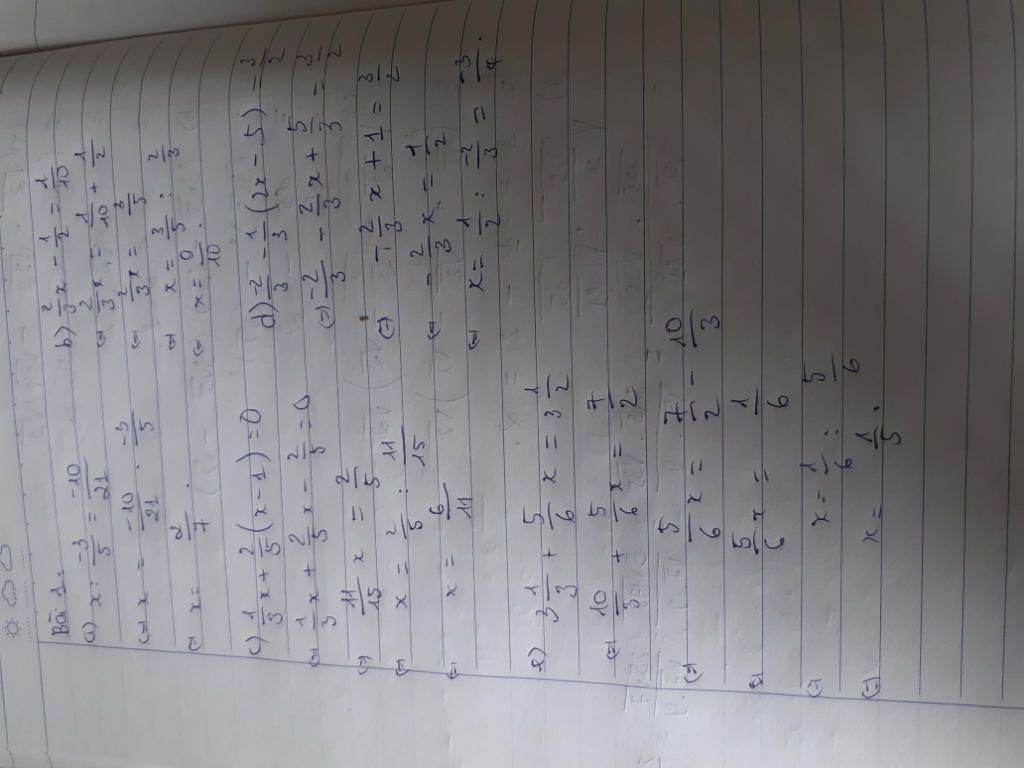 Bài 1:
a) x : -3/5 = -10/21
(=) x = -10/21 . -3/5
(=) x = 2/7
b) 2/3 x - 1/2 = 1/10
(=) 2/3 x = 1/10 + 1/2
(=) 2/3 x = 3/5
(=) x = 3/5 : 2/3
(=) x = 9/10.
c) 1/3 x + 2/5 (x - 1) = 0
(=) 1/3 x + 2/5 x - 2/5 = 0
(=) 11/15 x = 2/5
(=) x = 2/5 : 11/15
(=) x = 6/11
d) -2/3 - 1/3 (2x - 5) = 3/2
(=) -2/3 - 2/3 x + 5/3 = 3/2
(=) -2/3 x + 1 = 3/2
(=) -2/3 x = 1/2
(=) x = 1/2 : -2/3 = -3/4.
e) 3 1/3 + 5/6 x = 3 1/2
(=) 10/3 + 5/6 x = 7/2
(=) 5/6 x = 7/2 - 10/3
(=) 5/6 x = 1/6
(=) x = 1/6 : 5/6
(=) x = 1/5.